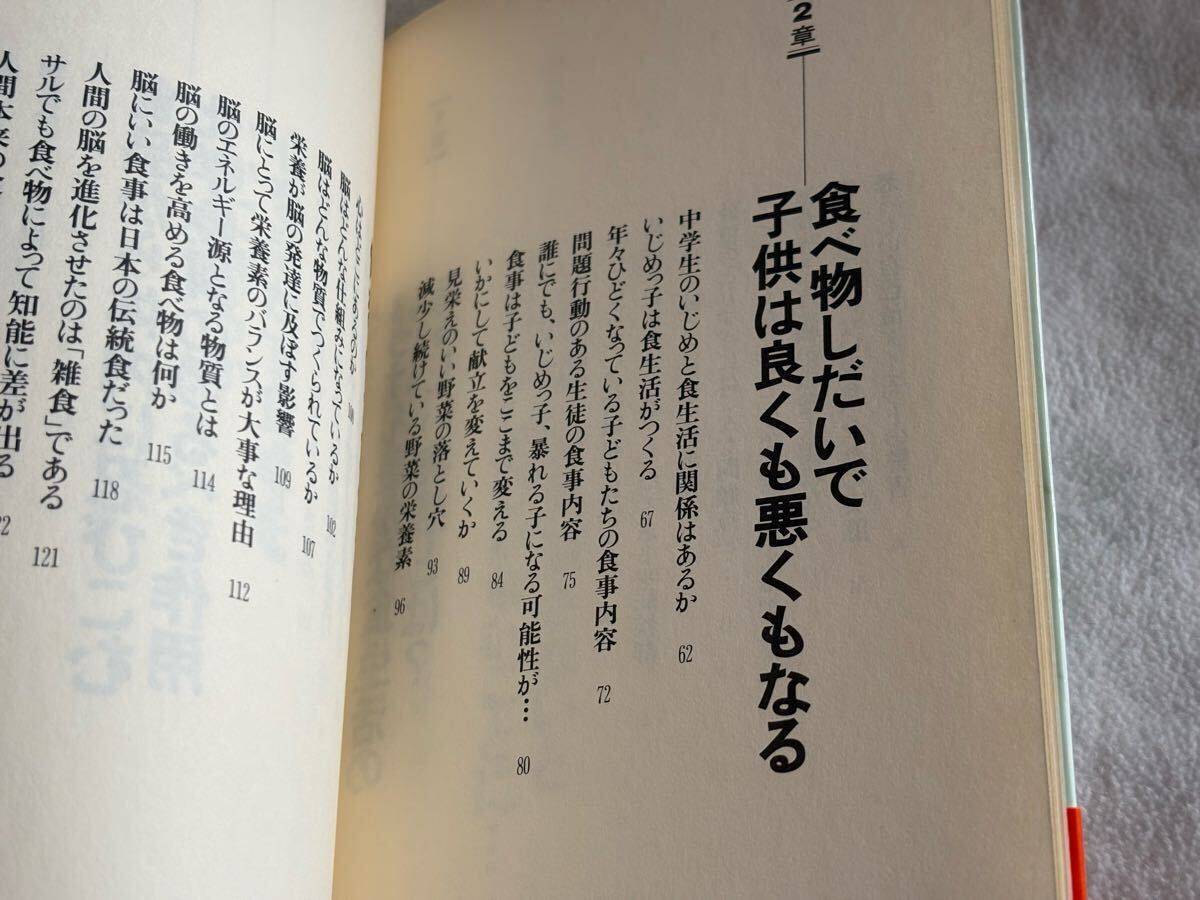 2章
食べ物しだいで
子供は良くも悪くもなる
中学生のいじめと食生活に関係はあるか 62
いじめっ子は食生活がつくる 67
年々ひどくなっている子どもたちの食事内容 72
問題行動のある生徒の食事内容 75
誰にでも、いじめっ子、暴れる子になる可能性が… 80
食事は子どもをここまで変える 84
いかにして献立を変えていくか 89
見栄えのいい野菜の落とし穴 93
減少し続けている野菜の栄養素 96
心はどこにあるのか 100
脳はどんな仕組みになっているか 102
脳はどんな物質でつくられているか 107
栄養が脳の発達に及ぼす影響 109
脳にとって栄養素のバランスが大事な理由 112
脳のエネルギー源となる物質とは 114
脳の働きを高める食べ物は何か 115
脳にいい食事は日本の伝統食だった 118
人間の脳を進化させたのは「雑食」である 121
サルでも食べ物によって知能に差が出る
人間本来の